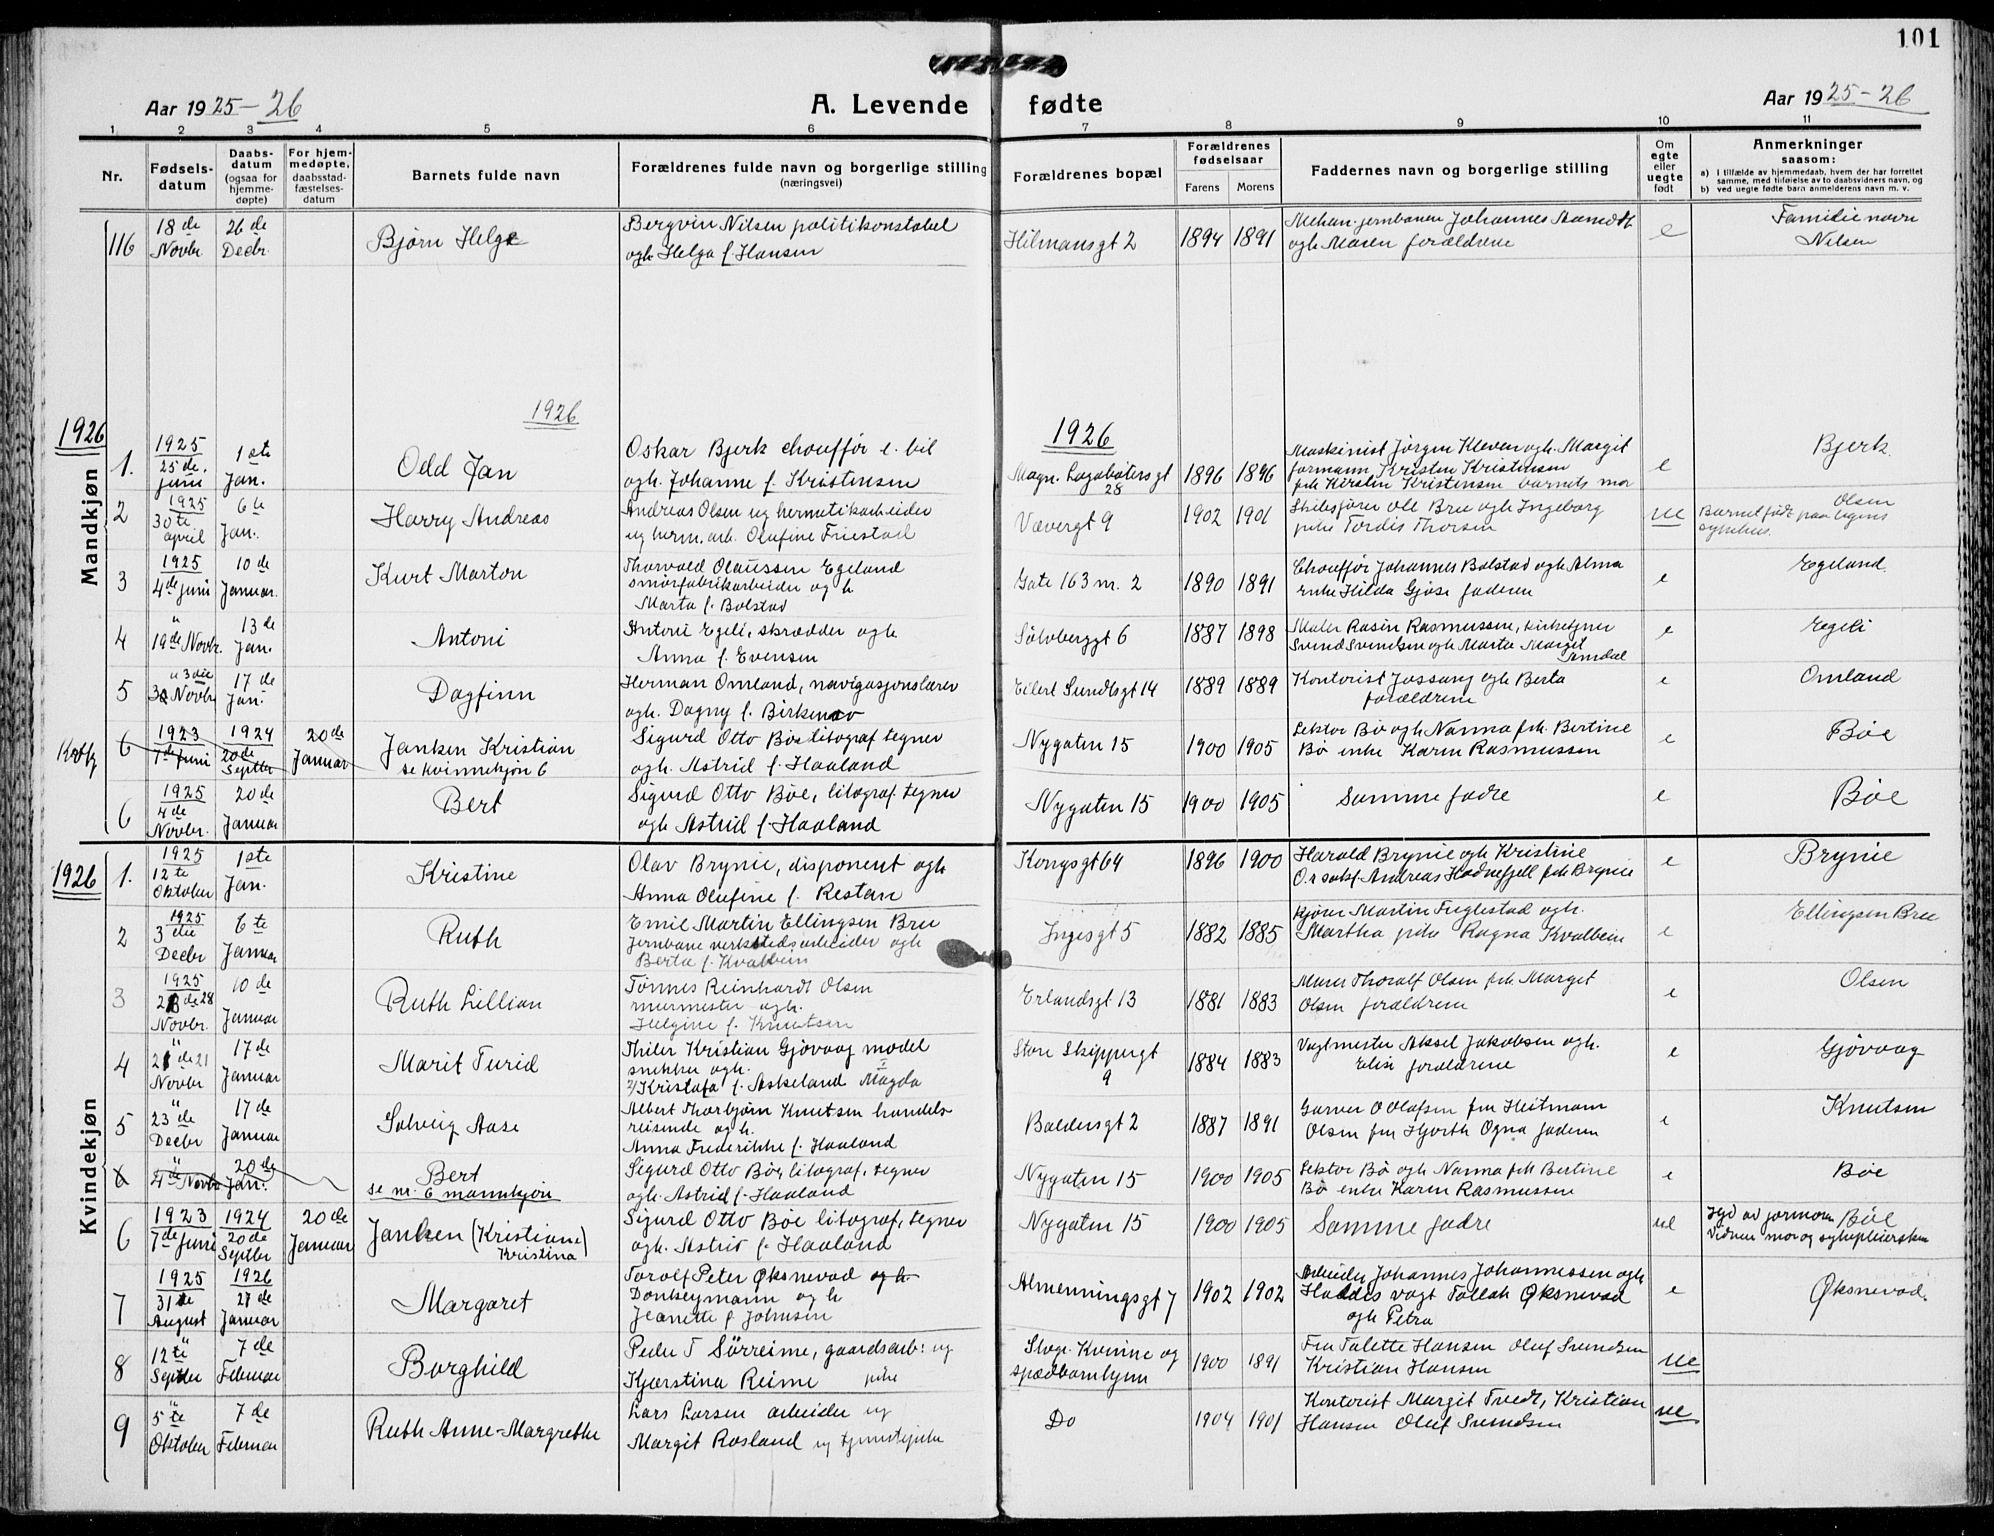 101
Aar 1925-26
A. Levende fødte
Aar 1925-26
1 2 3 4 5 6 7 8 9 10 11
Nr.
Fødsels-
datum
Daabs-
datum
(ogsaa for
hjemme-
døpte)
For hjem-
medøpte,
daabsstad-
fæstelses-
datum
Barnets fulde navn
Forældrenes fulde navn og borgerlige stilling
(næringsvei)
Forældrenes bopæl
Forældrenes
fødselsaar
Farens Morens
Faddernes navn og borgerlige stilling
Om
egte
eller
uegte
født
Anmerkninger
saasom:
a) i tilfælde av hjemmedaab, hvem der har forrettet
samme, med tilføielse av to daabsvidners navn, og
b) ved uegte fødte barn anmelderens navn m. v.
116
18 de
Novbr
26 de
Decbr.
Bjørn Helge
Bergvin Nilsen politikonstabel
ogh Helga f. Hansen
Hilmansgt 2
1894 1891
ogh Maren forældrene
e
Familienavn
Nilsen
1926
1926
1926
Mandkjøn
1.
1925
25 de.
juni
1ste
Jan.
Odd Jan
Oskar Bjerk chouffør e. bil
ogh. Johanne f. Kristensen
Magn. Lagabøtersgt
28
1896 1896
Maskinist Jørgen Kleven ogh. Margit
formann Kristen Kristensen
frk Kirsten Kristensen barnets mor
e
Bjerk
2
1925
30 te
april
6 te
Jan.
Harry Andreas
Andreas Olsen ug hermetikarbeider
ug herm. arb. Olufine Friestad
Vævergt 9
1902 1901
Skibsfører Ole Bru ogh Ingeborg
pike Tordis Thorsen
ue
Olsen
Barnet født paa egens
sykehus.
3
1925
4 de juni
10 de
Januar.
Kurt Marton
Thorvald Olaussen Egeland
smørfabrikarbeider og h
Marta f. Bolstad
Gate 163 m. 2
1890 1891
Chouffør Johannes Bolstad ogh Alma
enke Hilda Gjøse faderen
e
Egeland.
4
"
19 de Novbr.
13 de
Jan.
Antoni
Antoni Egeli, skrædder ogh
Anna f. Evensen
Sølvberggt 6
1887 1898
Maler Rasin Rasmussen, kirketjener
Svend Svendsen ogh Marta Margit
e
Egeli
5
" 3die
Novbr
17 de
Jan.
Dagfinn
Herman Omland, navigasjonslærer
ogh. Dagny f. Birkenov
Eilert Sundtsgt 14
1889 1889
Kontorist Jossang ogh Berta
forældrene
e
Omland
6
1923
7 de juni
1924
20 de
Septbr
20 de
Januar
Janken Kristian
se Kvinnekjøn 6
Sigurd Otto Bøe litograf tegner
ogh. Astrid f. Haaland
Nygaten 15
1900 1905
Lektor Bø ogh Nanna frk. Bertine
Bø enke Karen Rasmussen
e
Bøe
6
1925
4 de
Novbr.
20 de
Januar
Bert
Sigurd Otto Bøe, litograf. tegner
ogh Astrid f. Haaland
Nygaten 15
1900 1905
Samme fadre
e
Bøe
1926
Kvindekjøn
1.
1925
12 te
Oktober
1ste
Jan.
Kristine
Olav Brynie, disponent ogh
Anna Olufine f. Restan
Kongsgt 64
1896 1900
Harald Brynie ogh Kristine
O.rsaksf. Andreas Hodnefjell frk Brynie
e
Brynie
2
1925
3 die
Decbr
6 te
Januar
Ruth
Emil Martin Ellingsen Bru
Jernbane verkstedsarbeider ogh
Berta f. Kvalbein
Ingesgt 5
1882 1885
Kjører Martin Fuglestad ogh.
Martha pike Ragna Kvalbein
e
Ellingsen Bru
3
1925
28
Novbr.
10 de
Januar
Ruth Lillian
Tønnes Reinhardt Olsen
murmester ogh.
Helgine f. Knutsen
Erlandsgt 13
1881 1883
Murer Thoralf Olsen frk. Marget
Olsen forældrene
e
Olsen
4
"
de 21
Novbr
17 de
Januar
Marit Turid
Thiler Kristian Gjøvaag model
snekker ogh.
Kristofa f. Askeland Magda
Store Skippergt
9
1884 1883
Vagtmester Aksel Jakobsen ogh.
Elise forældrene
e
Gjøvaag
5
"
23 de
Decbr
17 de
Januar
Solveig Aase
Albert Thorbjørn Knutsen handels-
reisende og h.
Anna Frederikke f. Haaland
Baldersgt 2
1887 1891
Garver O Olafsen fru Heitmann
Olsen fru Hjorth Ogna faderen
e
Knutsen
6
"
4 de Novbr
20 de
Jan.
Bert
se nr. 6 mannkjøn
Sigurd Otto Bøe, litograf. tegner
ogh. Astrid f. Haaland
Nygaten 15
1900 1905
Lektor Bø ogh Nanna frk Bertine
Bø enke Karen Rasmussen
e
Bøe
6
1923
7 de juni
1924
20 de
Septbr
20 de
Januar
Janken (Kristiane)
Kristina
Sigurd Otto Bøe litograf. tegner
ogh. Astrid f. Haaland
Nygaten 15
1900 1905
Samme fadre
ue
Hjd av jormora Bøe
Vidner mor og sykepleiersken
7
1925
31 te
August
1926
27 de
Januar
Margaret
Torolf Peter Øksnevad og h
Donkeymann og h
Jeanette f Johnsen
Almenningsgt 7
1902 1902
Arbeider Johannes Johannessen ogh
Haldis vagt Tollak Øksnevad
ogh Petra
e
Øksnevad.
8
"
12 te
Septbr
7 de
Februar
Borghild
Peder T Sørreime, gaardsarb: ug
Kjerstina Reime pike
Stvgr. Kvinne og
spædbarnhjem
1900 1891
Fru Talette Hansen Oluf Svendsen
Kristian Hansen
ue
9
"
5 te
Oktober
7 de
Februar
Ruth Anne-Margrethe
Lars Larsen arbeider ug
Margit Rosland ug tjenestepike
Do
1904 1901
Kontorist Margit Tvedt, Kristian
Hansen Oluf Svendsen
ue